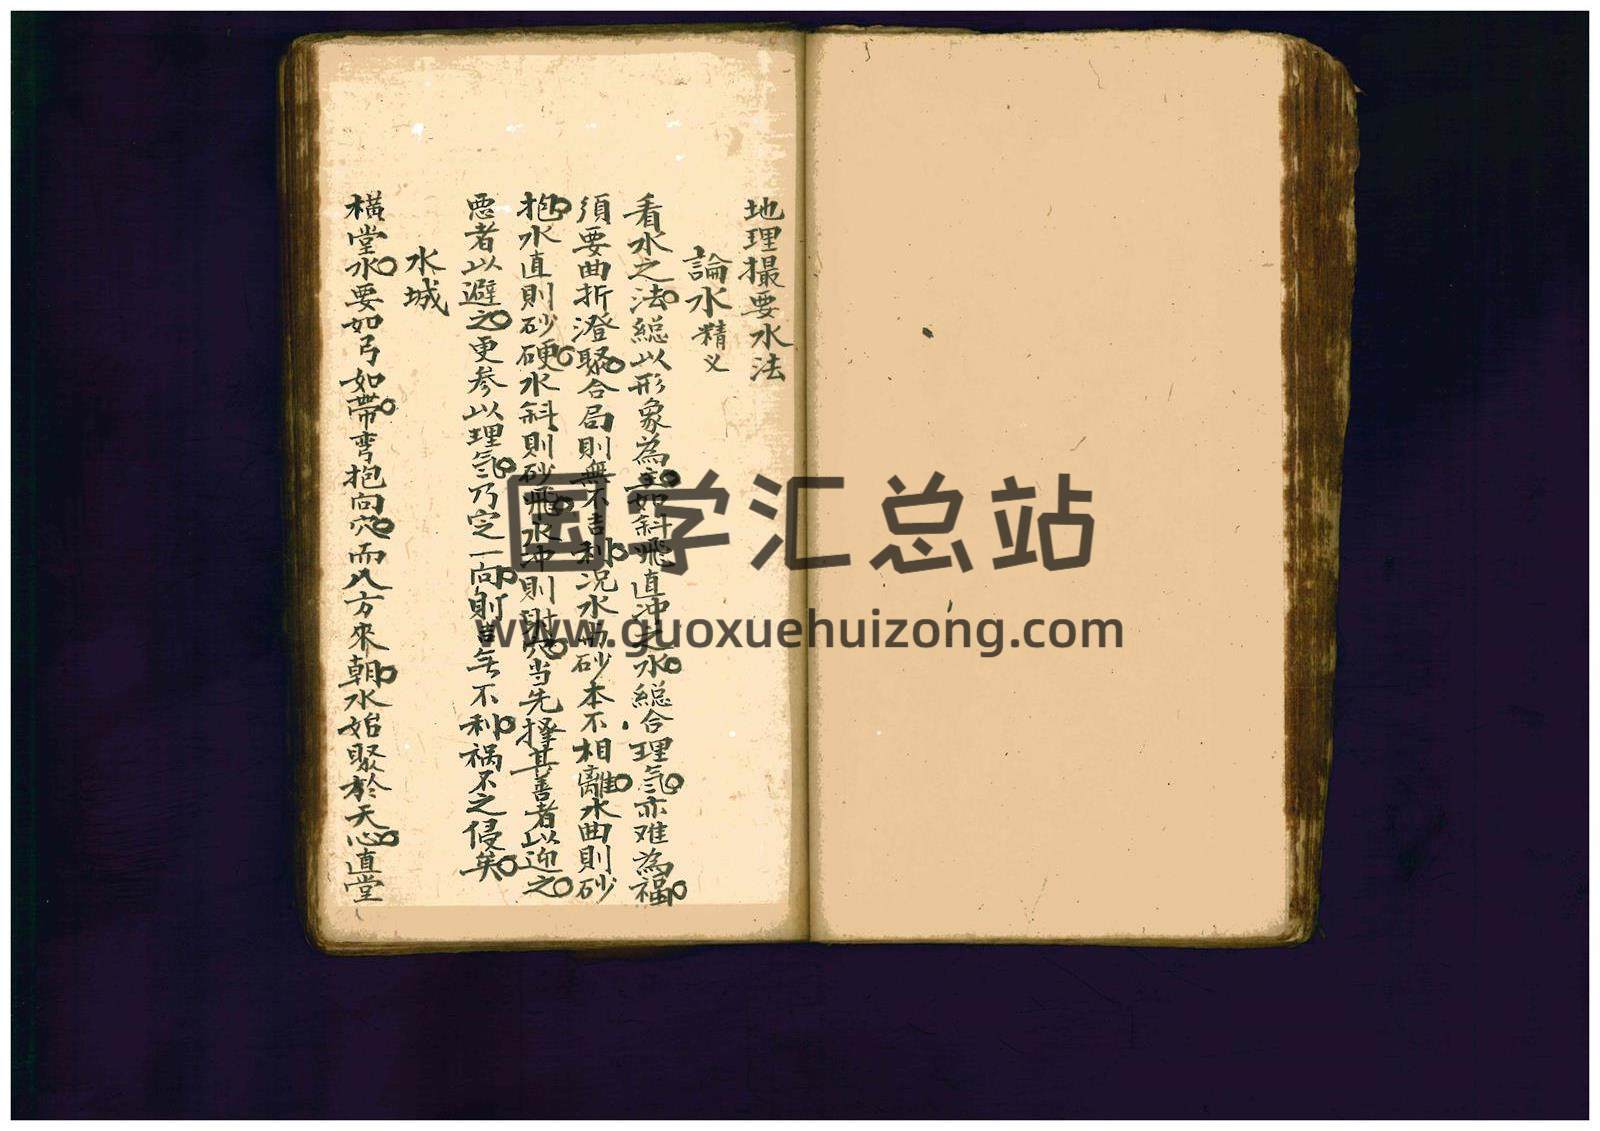 地理撮要水法
論水精义
看水之法總以形象為主如斜飛直冲之水總合理氣亦难為福
須要曲折澄聚合局則無不吉利况水與砂本不相離水曲則砂
抱水直則砂硬水斜則砂飛水冲則射穴当先擇其善者以迎之
悪者以避之更参以理氣乃定一向則吉无不利禍不之侵矣
水城
橫堂水要如弓如帶弯抱向穴而八方來朝水始聚於天心直堂
国学汇总站
www.guoxuehuizong.com